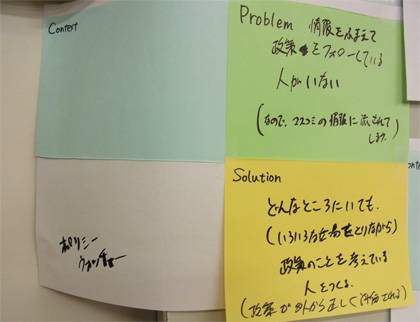 Context
Problem 情報をふまえて
政策をフォローしている
人がいない
(なので、マスコミの情報に流されて
しまう)
Solution
どんなところにいても、
(いろいろな立場をとりながら)
政策のことを考えている
人をつくる。
(政策が外から正しく評価される)
ポリシー
ウォッチャー